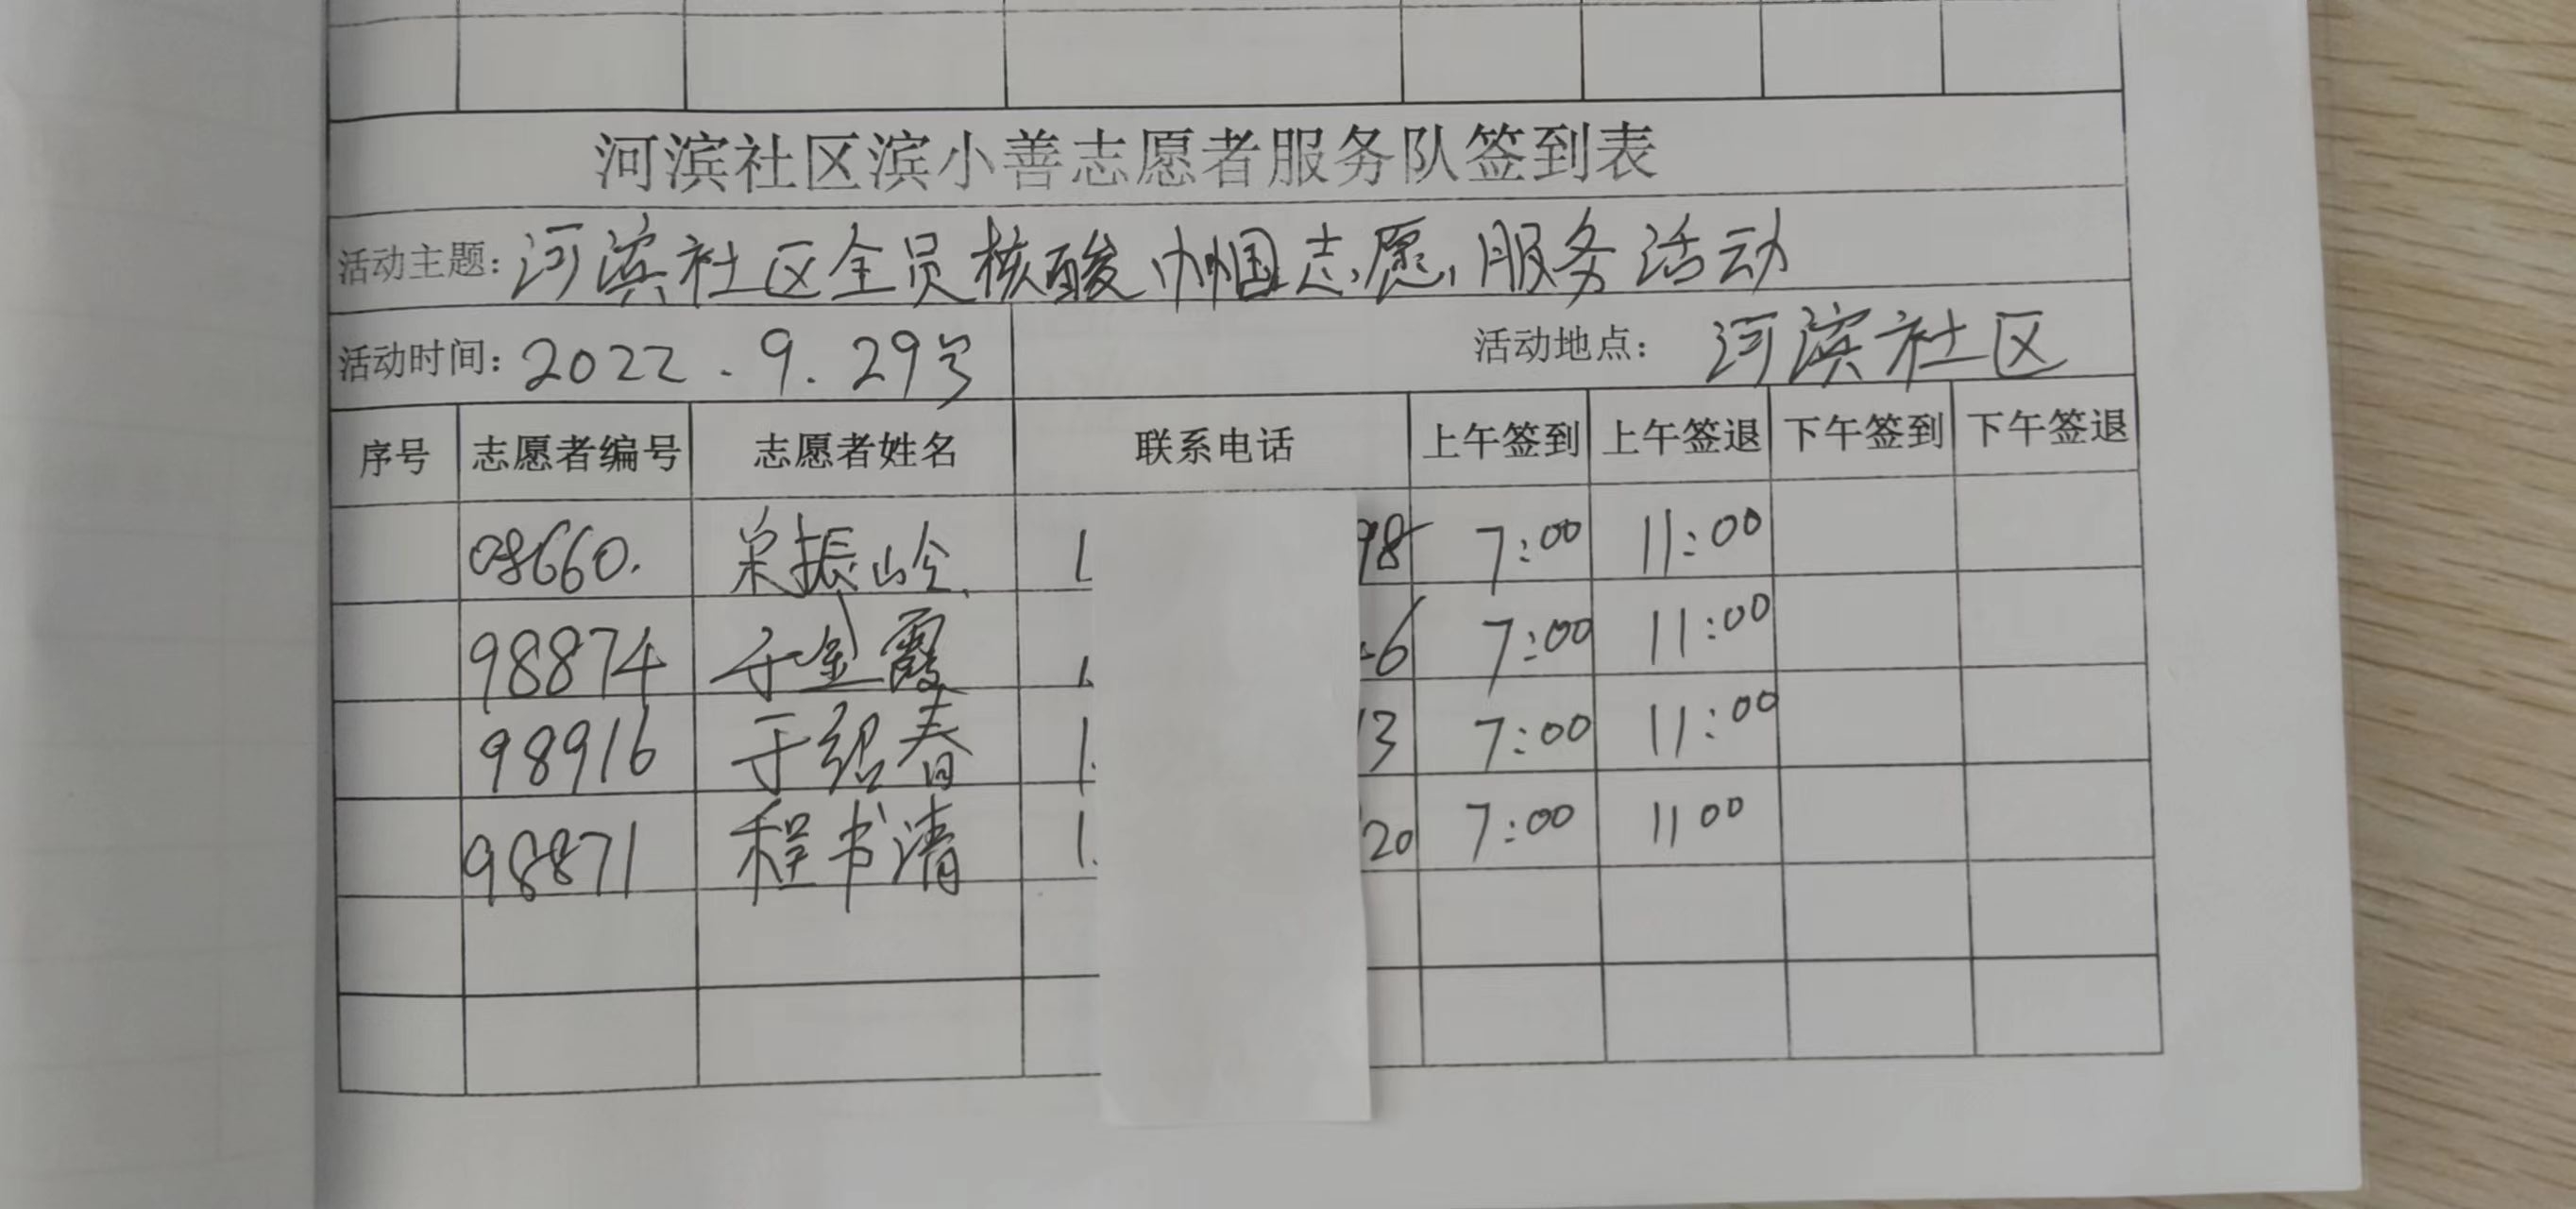 河滨社区滨小善志愿者服务队签到表
活动主题: 河滨社区全员核酸巾帼志愿服务活动
活动时间: 2022.9.29号 活动地点: 河滨社区
序号 志愿者编号 志愿者姓名 联系电话 上午签到 上午签退 下午签到 下午签退
08660. 振岭 1 98 7:00 11:00
98874 于金霞 6 7:00 11:00
98916 于绍春 1 3 7:00 11:00
98871 程书清 1 20 7:00 11 00